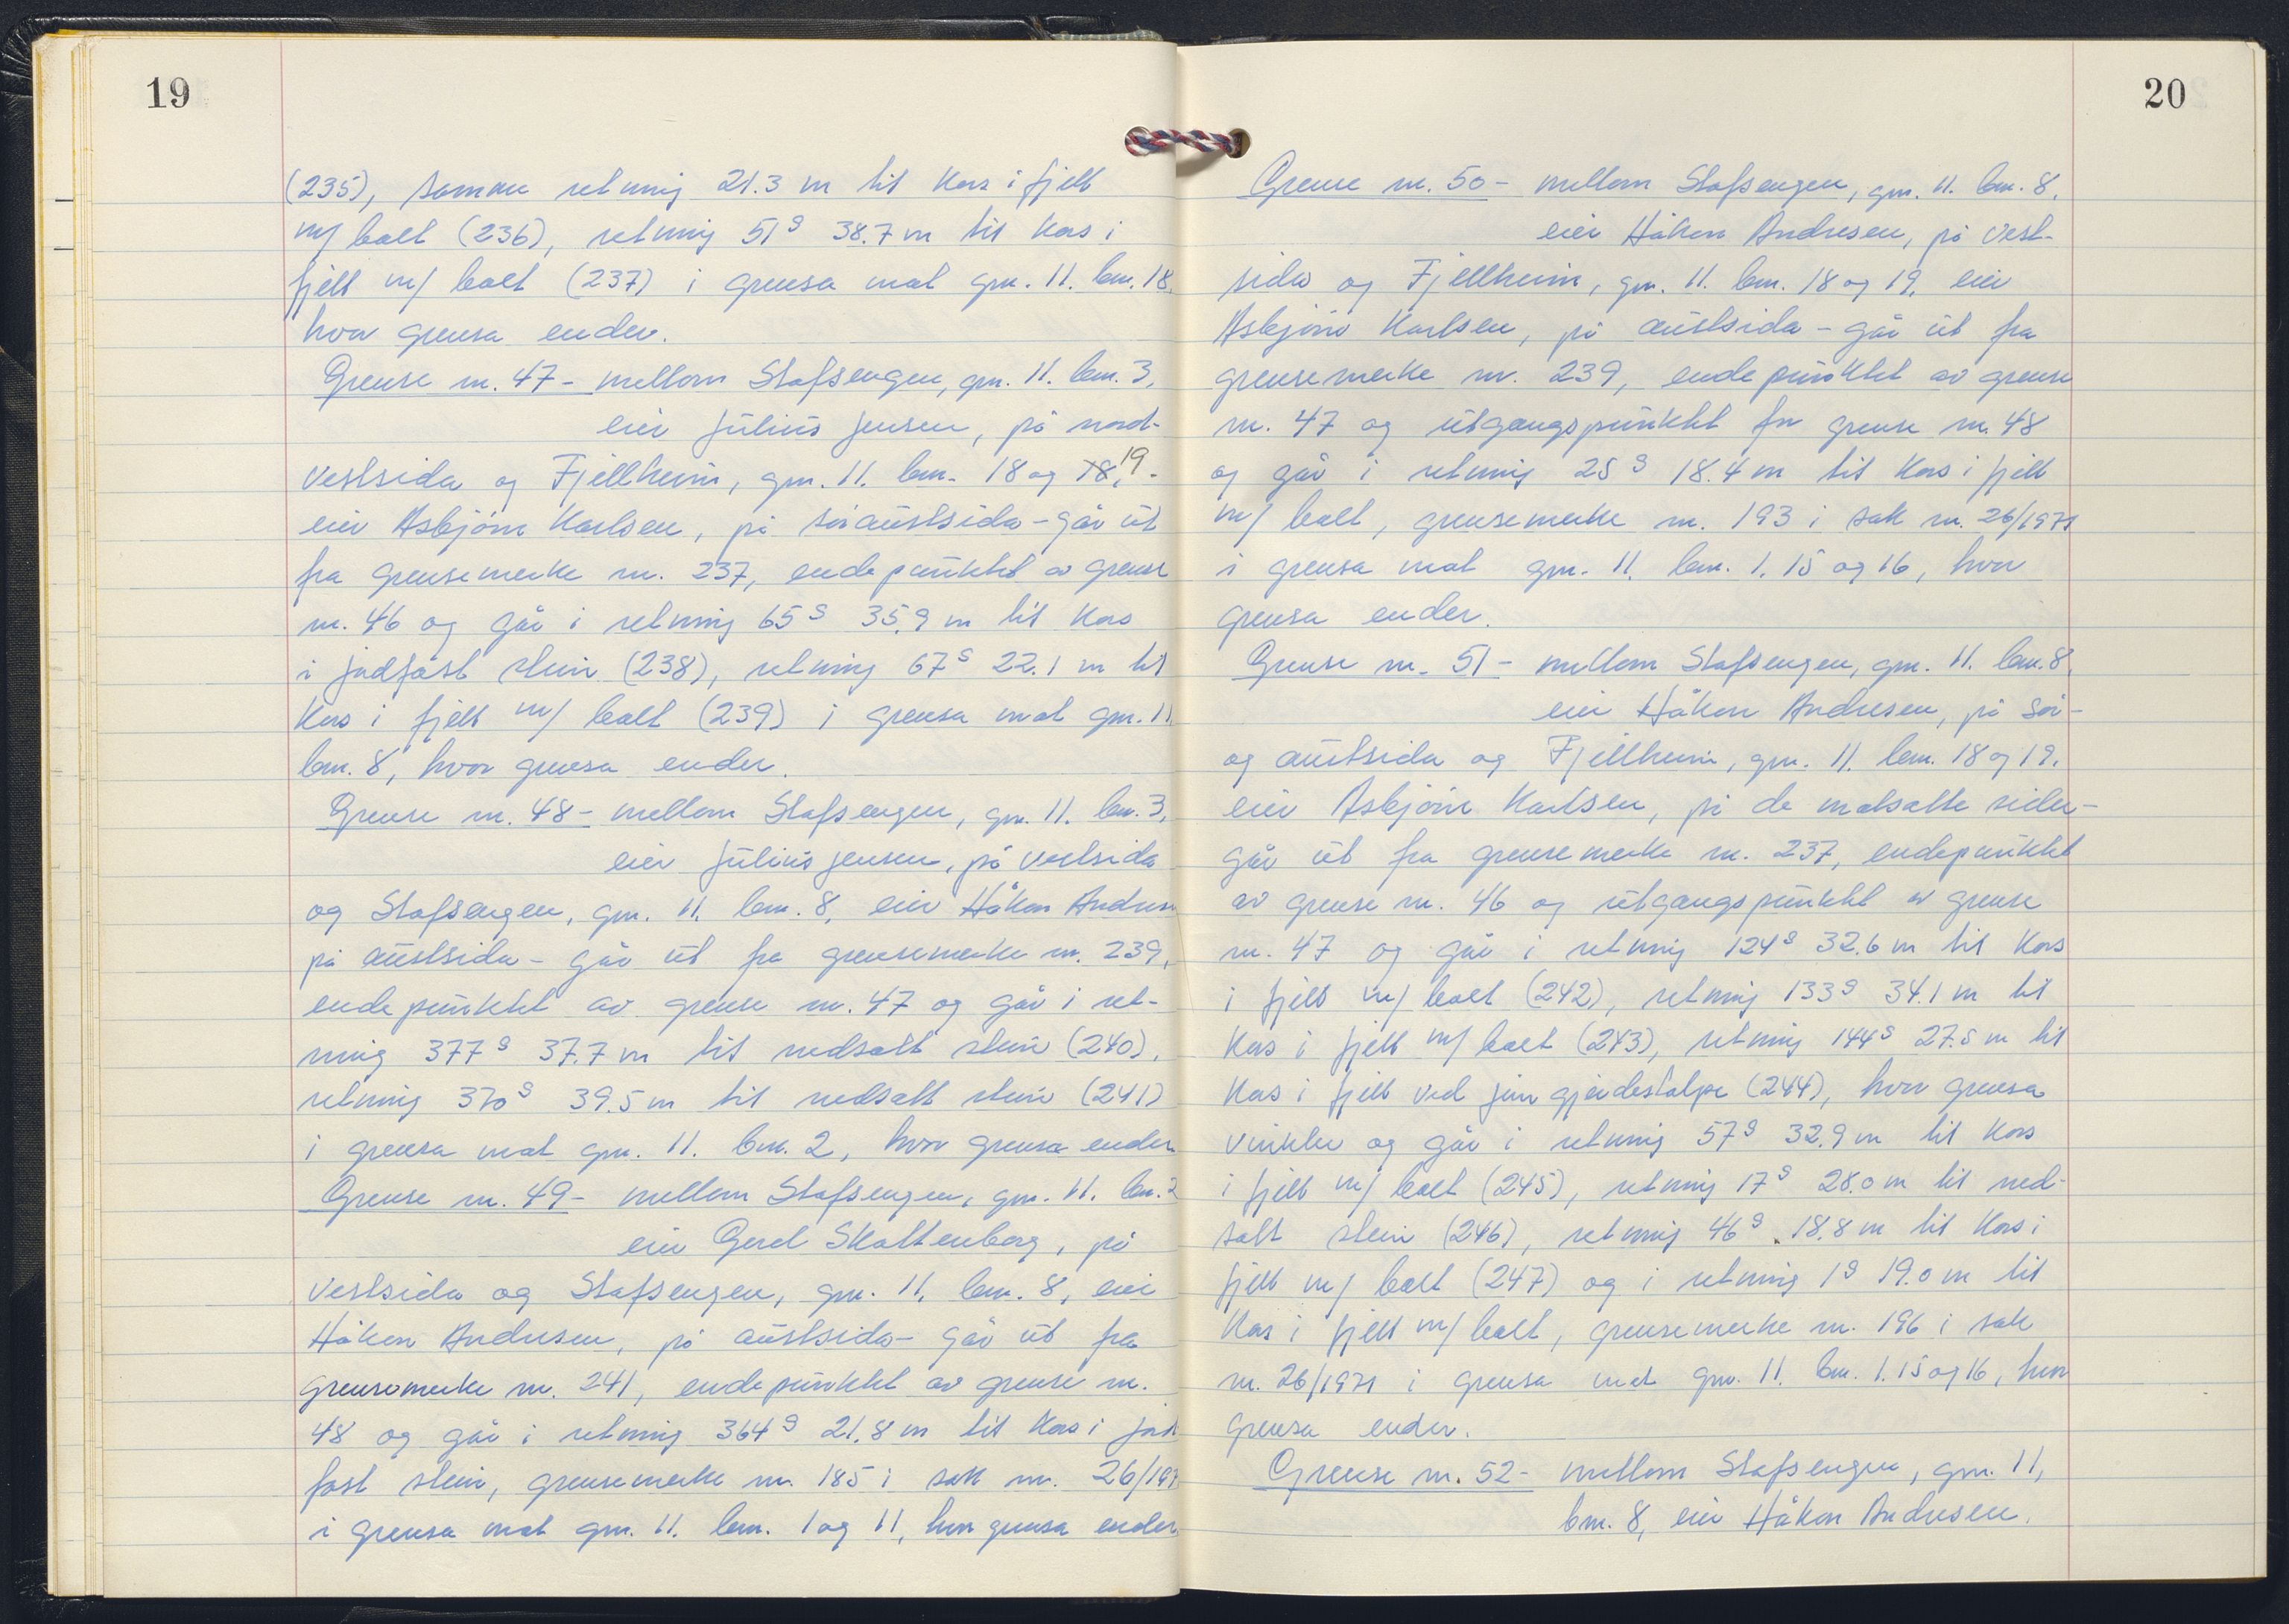 19
(235), samme retning 21.3 m til kors i fjell
m/ bolt (236), retning 51g 38.7 m til kors i
fjell m/ bolt (237) i grensa mot gnr. 11. bnr. 18.
hvor grensa ender.
Grense nr. 47 - mellom Stafsengen, gnr. 11. bnr. 3,
eier Julius Jensen, på nord-
vestsida og Fjellheim, gnr. 11. bnr. 18 og 18, 19 -
eier Asbjørn Karlsen, på søraustsida - går ut
fra grensemerke nr. 237, endepunktet av grense
nr. 46 og går i retning 65g 35.9 m til kors
i jordfast stein (238), retning 67g 22.1 m til
kors i fjell m/ bolt (239) i grensa mot gnr. 11
bnr. 8, hvor grensa ender.
Grense nr. 48 - mellom Stafsengen, gnr. 11. bnr. 3,
eier Julius Jensen, på vestsida
og Stafsengen, gnr. 11. bnr. 8, eier Håkon Andresen
på austsida - går ut fra grensemerke nr. 239,
endepunktet av grense nr. 47 og går i ret-
ning 377g 37.7 m til nedsatt stein (240),
retning 370g 39.5 m til nedsatt stein (241)
i grensa mot gnr. 11. bnr. 2, hvor grensa ender.
Grense nr. 49 - mellom Stafsengen, gnr. 11. bnr. 2
eier Gerd Skaltenborg, på
vestsida og Stafsengen, gnr. 11. bnr. 8, eier
Håkon Andresen, på austsida - går ut fra
grensemerke nr. 241, endepunktet av grense nr.
48 og går i retning 364g 21.8 m til kors i jord
fast stein, grensemerke nr. 185 i sak nr. 26/197
i grensa mot gnr. 11. bnr. 1 og 11, hvor grensa ender.
20
Grense nr. 50 - mellom Stafsengen, gnr. 11. bnr. 8,
eier Håkon Andresen, på vest-
sida og Fjellheim, gnr. 11. bnr. 18 og 19, eier
Asbjørn Karlsen, på austsida - går ut fra
grensemerke nr. 239, endepunktet av grense
nr. 47 og utgangspunktet for grense nr. 48
og går i retning 25g 18.4 m til kors i fjell
m/ bolt, grensemerke nr. 193 i sak nr. 26/1971
i grensa mot gnr. 11. bnr. 1. 15 og 16, hvor
grensa ender.
Grense nr. 51 - mellom Stafsengen, gnr. 11. bnr. 8,
eier Håkon Andresen, på sør-
og austsida og Fjellheim, gnr. 11. bnr. 18 og 19.
eier Asbjørn Karlsen, på de motsatte sider -
går ut fra grensemerke nr. 237, endepunktet
av grense nr. 46 og utgangspunktet av grense
nr. 47 og går i retning 124g 32.6 m til kors
i fjell m/ bolt (242), retning 133g 34.1 m til
kors i fjell m/ bolt (243), retning 144g 27.5 m til
kors i fjell ved jern gjerdestolpe (244), hvor grensa
vinkler og går i retning 57g 32.9 m til kors
i fjell m/ bolt (245), retning 17g 28.0 m til ned-
satt stein (246), retning 46g 18.8 m til kors i
fjell m/ bolt (247) og i retning 1g 19.0 m til
kors i fjell m/ bolt, grensemerke nr. 196 i sak
nr. 26/1971 i grensa mot gnr. 11. bnr. 1. 15 og 16, hvor
grensa ender.
Grense nr. 52 - mellom Stafsengen, gnr. 11,
bnr. 8, eier Håkon Andresen.